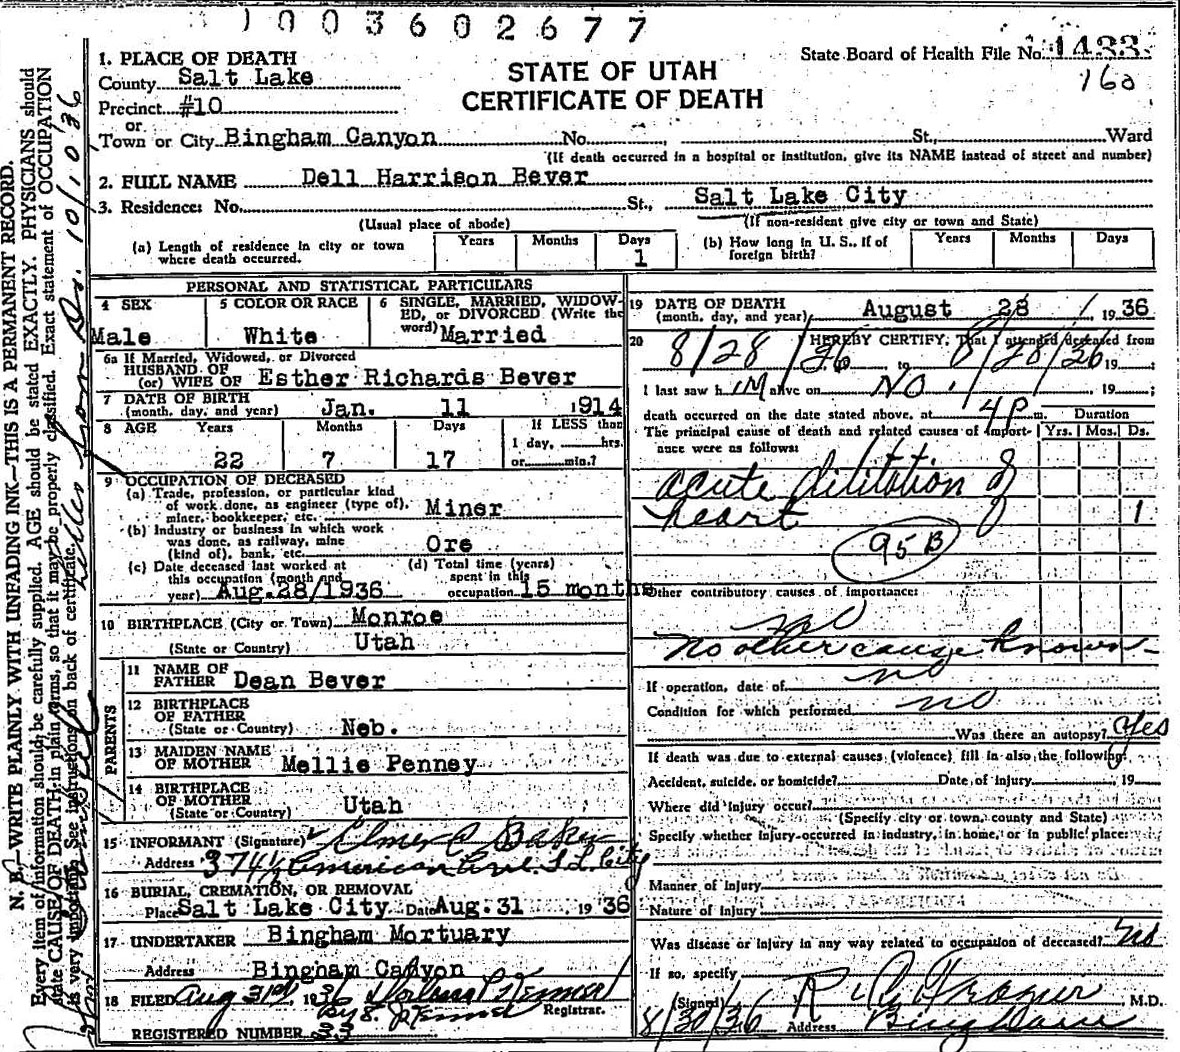 1003602677
1. PLACE OF DEATH
State Board of Health File No. 1433
County Salt Lake
STATE OF UTAH
160
Precinct #10
CERTIFICATE OF DEATH
or
Town or City Bingham Canyon No. St., Ward
(If death occurred in a hospital or institution, give its NAME instead of street and number)
2. FULL NAME Dell Harrison Bever
3. Residence: No. St., Salt Lake City
(Usual place of abode) (If non-resident give city or town and State)
(a) Length of residence in city or town where death occurred. Years Months Days 1
(b) How long in U. S., if of foreign birth? Years Months Days
PERSONAL AND STATISTICAL PARTICULARS
4 SEX Male
5 COLOR OR RACE White
6 SINGLE, MARRIED, WIDOWED, or DIVORCED (Write the word) Married
6a If Married, Widowed, or Divorced
HUSBAND OF
(or) WIFE OF Esther Richards Bever
7 DATE OF BIRTH
(month, day, and year) Jan. 11 1914
8 AGE Years Months Days If LESS than
1 day, hrs.
22 7 17 or min.?
9 OCCUPATION OF DECEASED
(a) Trade, profession, or particular kind
of work done, as engineer (type of),
miner, bookkeeper, etc. Miner
(b) Industry or business in which work
was done, as railway, mine
(kind of), bank, etc. Ore
(c) Date deceased last worked at
this occupation (month and
year) Aug.28/1936
(d) Total time (years)
spent in this
occupation 15 months
10 BIRTHPLACE (City or Town) Monroe
(State or Country) Utah
PARENTS
11 NAME OF
FATHER Dean Bever
12 BIRTHPLACE
OF FATHER
(State or Country) Neb.
13 MAIDEN NAME
OF MOTHER Mellie Penney
14 BIRTHPLACE
OF MOTHER
(State or Country) Utah
15 INFORMANT (Signature) Elmer C Baker
Address 374½ American Ave. S.L. City
16 BURIAL, CREMATION, OR REMOVAL
Place Salt Lake City Date Aug. 31 1936
17 UNDERTAKER Bingham Mortuary
Address Bingham Canyon
18 FILED Aug 31st, 1936
Registrar.
REGISTERED NUMBER 33
19 DATE OF DEATH
(month, day, and year) August 28 1936
20 I HEREBY CERTIFY, That I attended deceased from
8/28/36 to 8/28/36 19 ;
I last saw him alive on NO. , 19 ;
death occurred on the date stated above, at 4P m. Duration
The principal cause of death and related causes of importance were as follows: Yrs. Mos. Ds.
acute dilitation of
heart 1
95B
Other contributory causes of importance:
no
No other cause known
If operation, date of no
Condition for which performed no
Was there an autopsy? Yes
If death was due to external causes (violence) fill in also the following:
Accident, suicide, or homicide? Date of injury 19
Where did injury occur?
(Specify city or town, county and State)
Specify whether injury occurred in industry, in home, or in public place:
Manner of injury
Nature of injury
Was disease or injury in any way related to occupation of deceased? No
If so, specify
(Signed) R G Frazier M.D.
8/30/36 Address Bingham
N. B.—WRITE PLAINLY WITH UNFADING INK—THIS IS A PERMANENT RECORD.
Every item of information should be carefully supplied. AGE should be stated EXACTLY. PHYSICIANS should
state CAUSE OF DEATH in plain terms, so that it may be properly classified. Exact statement of OCCUPATION
is very important. See instructions on back of certificate.
10/10/36